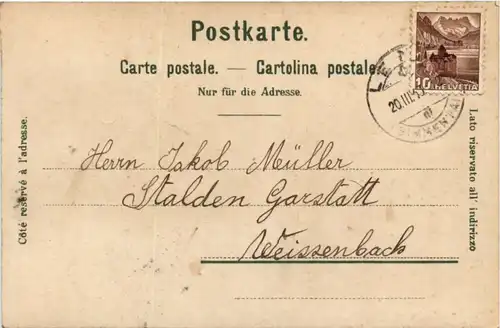 Postkarte.
Carte postale. — Cartolina postale.
Nur für die Adresse.
10 HELVETIA
20.III.
Côté réservé à l'adresse.
Lato riservato all' indirizzo
Herrn Jakob Müller
Stalden Garstatt
Weissenbach